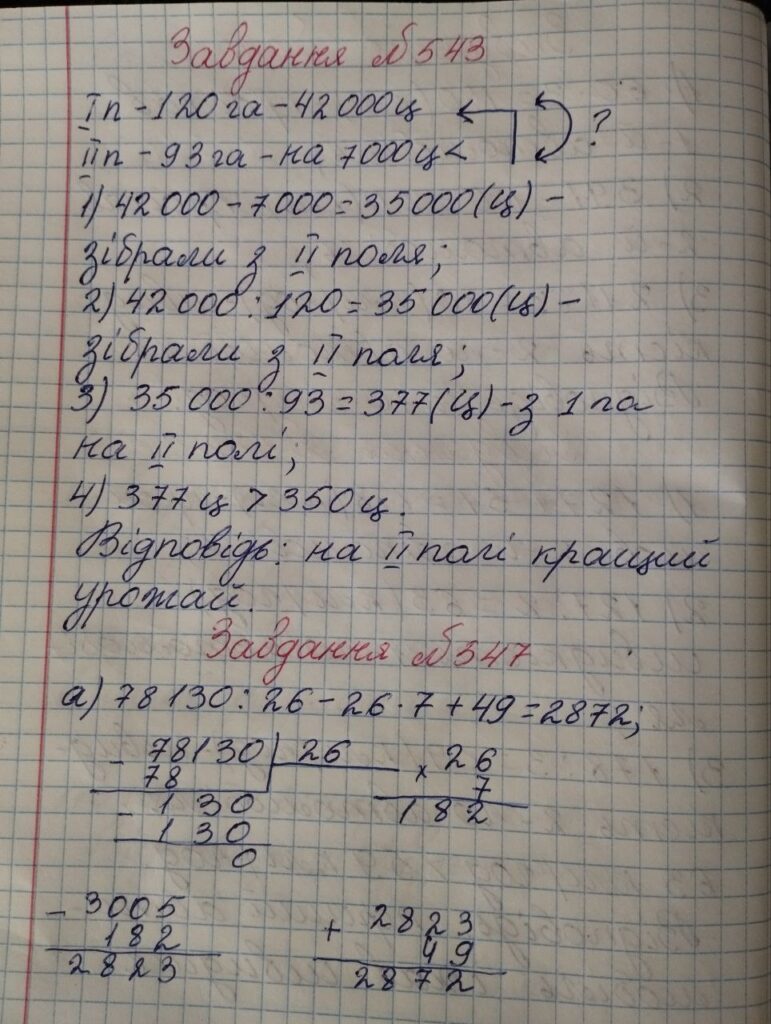 Завдання №543
I п - 120 га - 42 000 ц
II п - 93 га - на 7000 ц < ?
1) 42 000 - 7000 = 35000 (ц) -
зібрали з II поля;
2) 42 000 : 120 = 35 000 (ц) -
зібрали з II поля;
3) 35 000 : 93 = 377 (ц) - з 1 га
на II полі;
4) 377 ц > 350 ц.
Відповідь: на II полі кращий
урожай.
Завдання №547
а) 78 130 : 26 - 26 · 7 + 49 = 2872;
- 78130 | 26 × 26
78 7
- 130 182
130
0
- 3005 + 2823
182 49
2823 2872